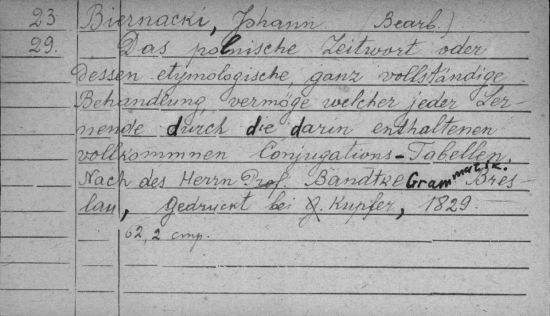 23 Biernacki, Johann (Bearb.)
29. Das polnische Zeitwort oder
dessen etymologische, ganz vollständige
Behandlung, vermöge welcher jeder Ler-
nende durch die darin enthaltenen
vollkommnen Conjugations-Tabellen.
Nach des Herrn Prof. Bandtke Grammatik. Bres-
lau, gedruckt bei J. Kupfer, 1829.
62, 2 cmp.